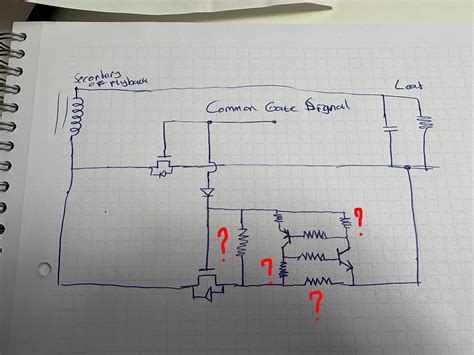 Secondary
of Flyback
Load
Common Gate Signal
?
?
?
?